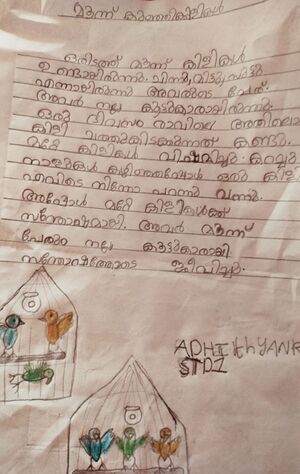 മൂന്ന് കുഞ്ഞിക്കിളികൾ
ഒരിടത്ത് മൂന്ന് കിളികൾ
ഉണ്ടായിരുന്നു. മിന്നു,മിട്ടു,ചിട്ടു
എന്നായിരുന്നു അവരുടെ പേര്.
അവർ നല്ല കൂട്ടുകാരായിരുന്നു.
ഒരു ദിവസം രാവിലെ അതിലൊരു
കിളി ചത്തുകിടക്കുന്നത് കണ്ടു.
മറ്റേ കിളികൾ വിഷമിച്ചു. കുറച്ചു
നാളുകൾ കഴിഞ്ഞപ്പോൾ ഒരു കിളി
എവിടെ നിന്നോ പറന്നു വന്നു.
അപ്പോൾ മറ്റേ കിളികൾക്ക്
സന്തോഷമായി. അവർ മൂന്ന്
പേരും നല്ല കൂട്ടുകാരായി
സന്തോഷത്തോടെ ജീവിച്ചു.
ADHIthYANR
STD1